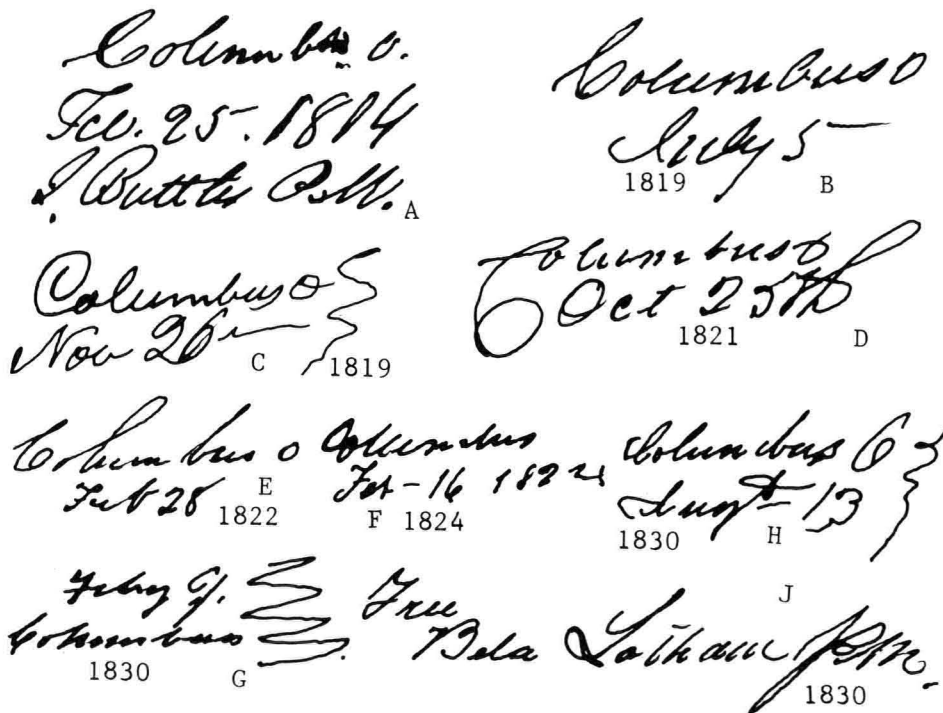 Columbus O.
Feb. 25. 1814
J. Buttles P.M. A
Columbus O
July 5
1819 B
Columbus O
Nov 26 C 1819
Columbus O
Oct 25th
1821 D
Columbus O
Feb 28 E 1822
Columbus
Feb - 16 1824
F 1824
Columbus O
Augt 13
1830 H
Feby 9.
Columbus
1830 G
J
Free
Bela Latham PM.
1830